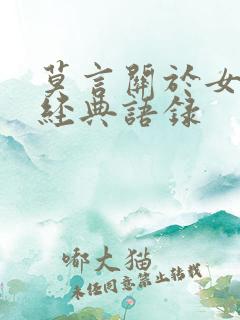 莫言關於女
經典語録
嘟大猫
未经同意禁止转载